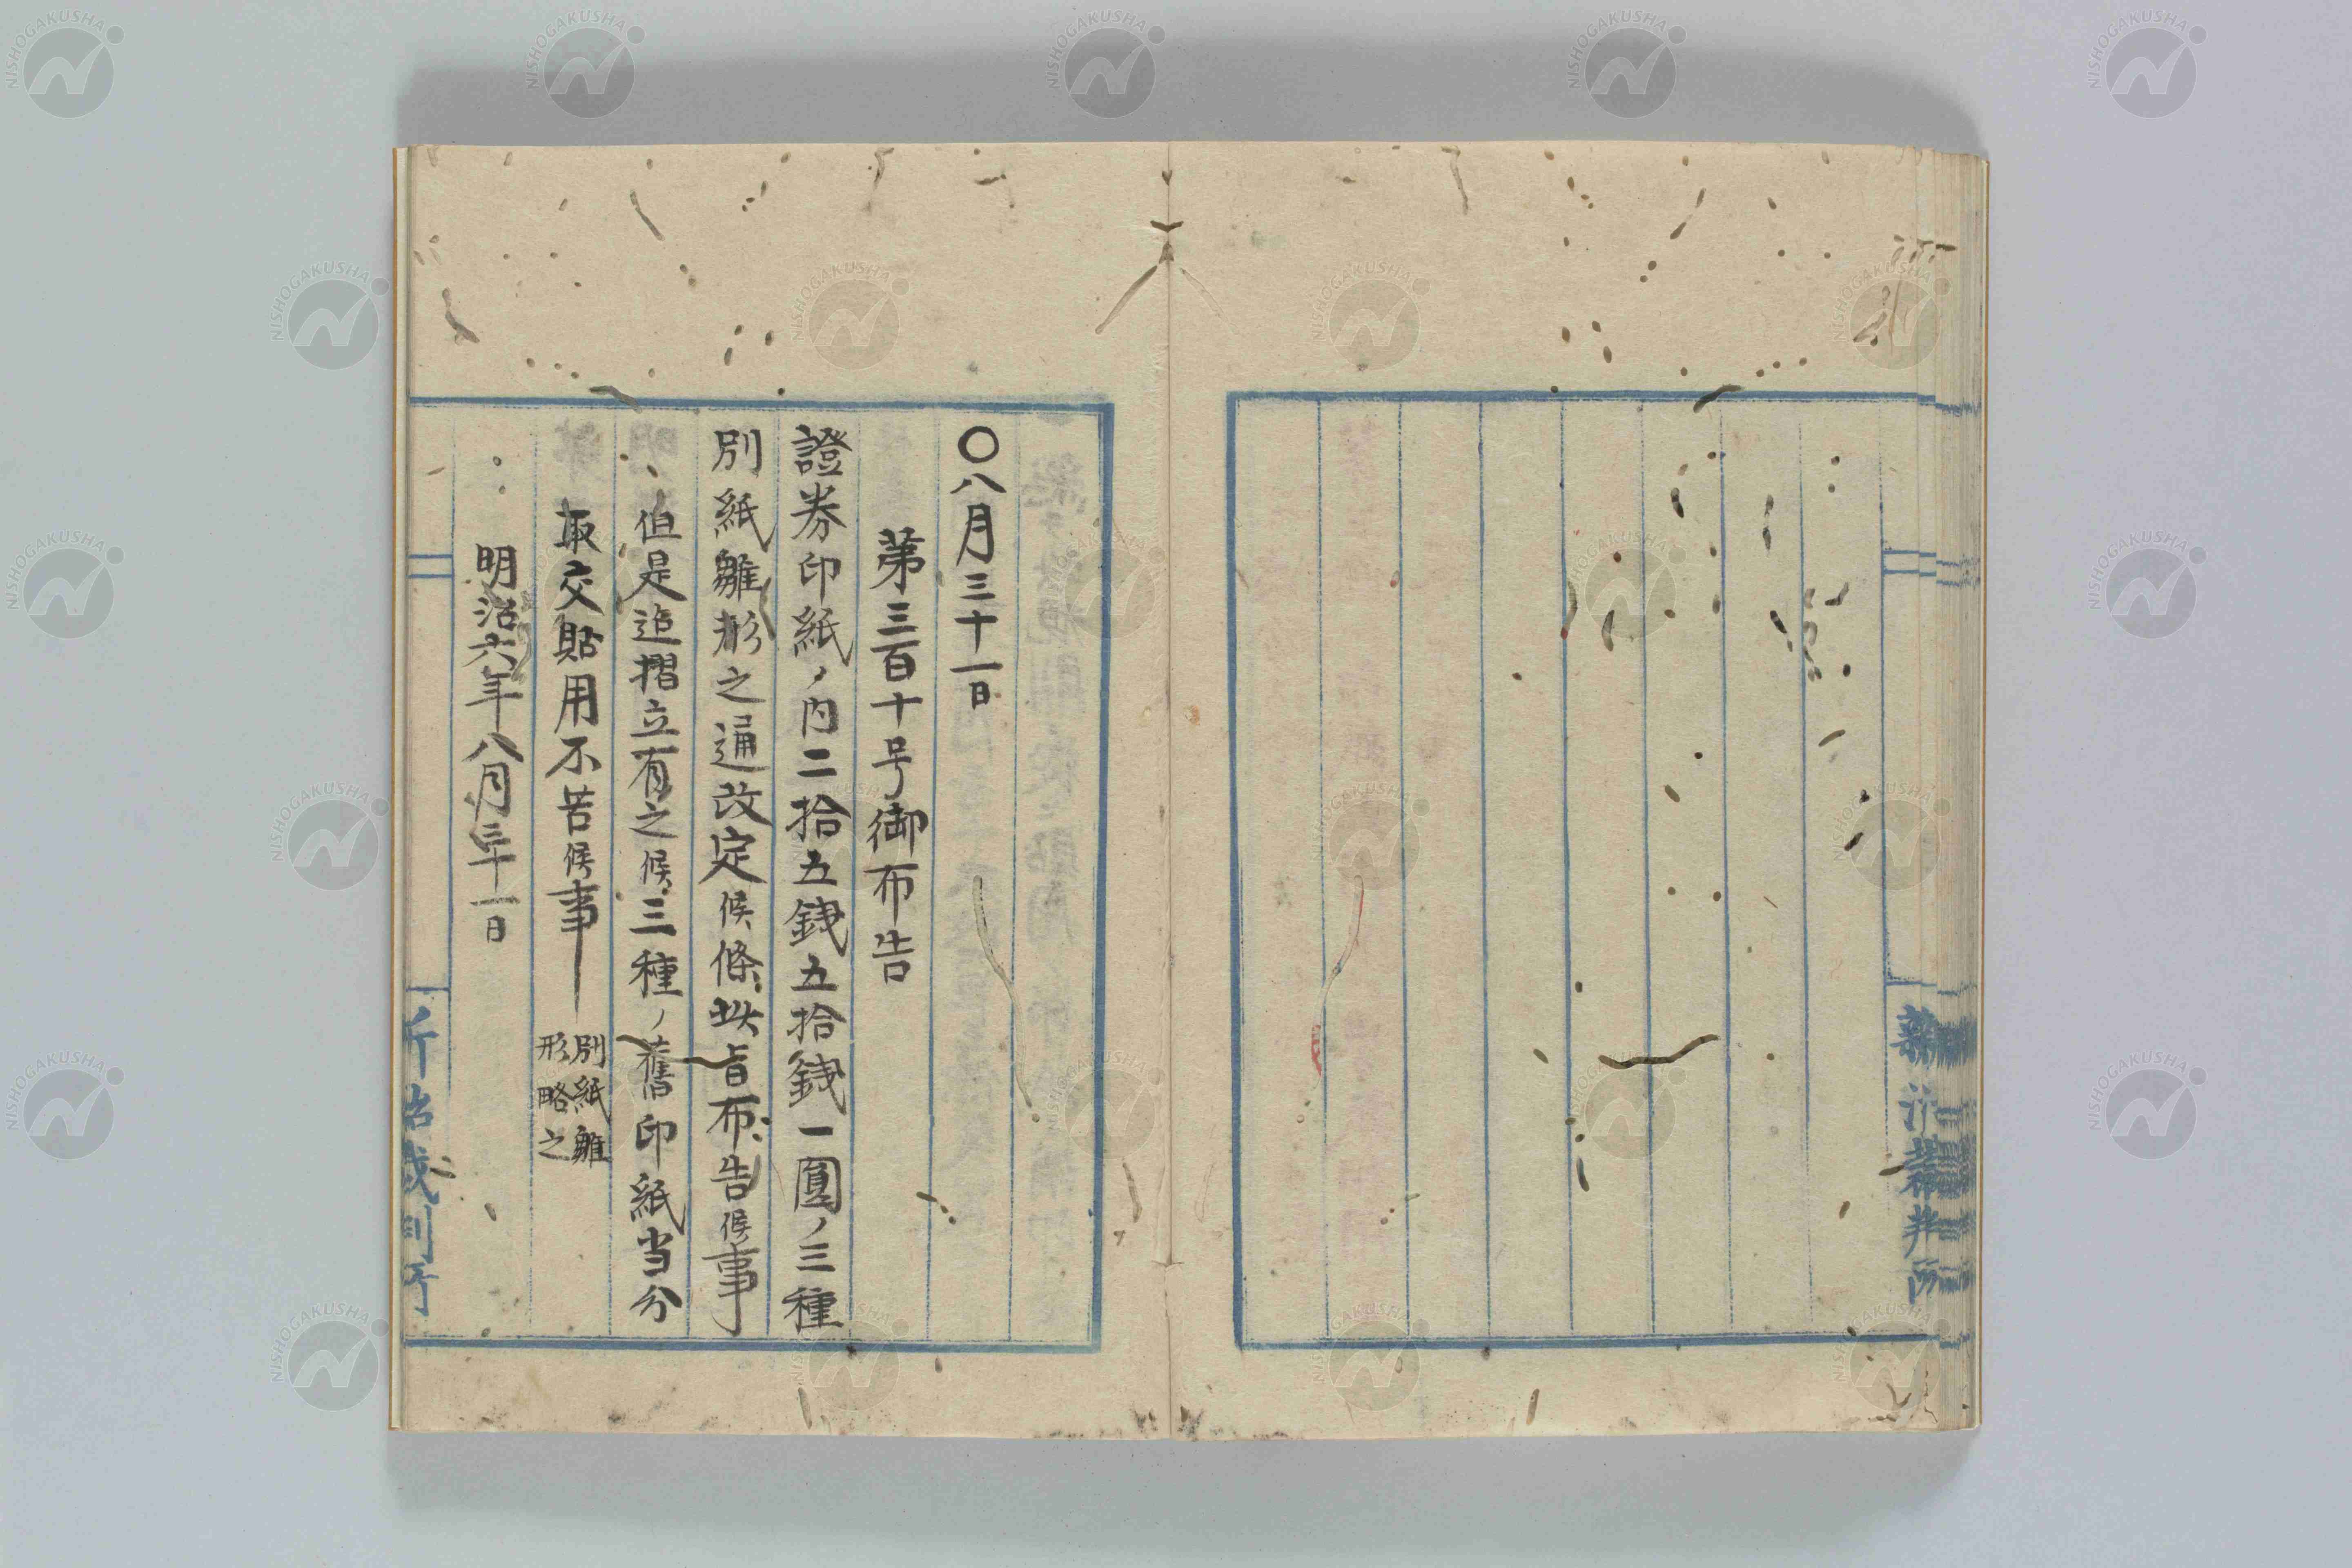 〇八月三十一日
第三百十号御布告
證券印紙ノ内二拾五錢五拾錢一圓ノ三種
別紙雛形之通改定候條此旨布告候事
但是迄摺立有之候三種ノ舊印紙当分
取交貼用不苦候事
別紙雛
形略之
明治六年八月三十一日
NISHOGAKUSHA